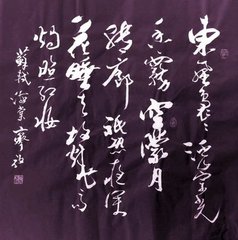 東風裊裊泛崇光
香霧空蒙月
轉廊祇恐夜深
花睡去故燒高
燭照紅妝
蘇軾海棠